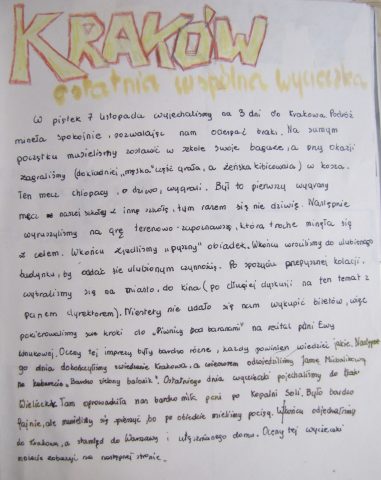 KRAKÓW
ostatnia wspólna wycieczka
W piątek 7 listopada wyjechaliśmy na 3 dni do Krakowa. Podróż
minęła spokojnie, pozwalając nam odespać braki. Na samym
początku musieliśmy zostawić w szkole swoje bagaże, a przy okazji
zagraliśmy (dokładniej „męska" część grała, a żeńska kibicowała) w kosza.
Ten mecz chłopacy, o dziwo, wygrali. Był to pierwszy wygrany
mecz naszej szkoły z inną szkołą, tym razem się nie dziwię. Następnie
wyruszyliśmy na grę terenowo-zapoznawczą, która trochę minęła się
z celem. Wkońcu zjedliśmy „pyszny" obiadek. Wkońcu wrociliśmy do ulubionego
budynku, by oddać się ulubionym czynnością. Po spożyciu przepysznej kolacji,
wybraliśmy się na miasto, do kina (po długiej dyskusji na ten temat z
panem dyrektorem). Niestety nie udało się nam wykupić biletów, więc
pokierowaliśmy swe kroki do „Piwnicy pod baranami" na recital pani Ewy
Wnukowej. Oceny tej imprezy były bardzo różne, każdy powinien wiedzieć jakie. Następne-
go dnia dokończyliśmy zwiedzanie Krakowa, a wieczorem odwiedziliśmy Jamę Michalikową
na kabarecie „Bardzo zielony balonik". Ostatniego dnia wycieczki pojechaliśmy do
Wieliczki. Tam oprowadziła nas bardzo miła pani po Kopalni Soli. Było bardzo
fajnie, ale musieliśmy się spieszyć, bo po obiedzie mieliśmy pociąg. Wkońcu odjechaliśmy
do Krakowa, a stamtąd do Warszawy i utęsknionego domu. Oceny tej wycieczki
możecie zobaczyć na następnej stronie.